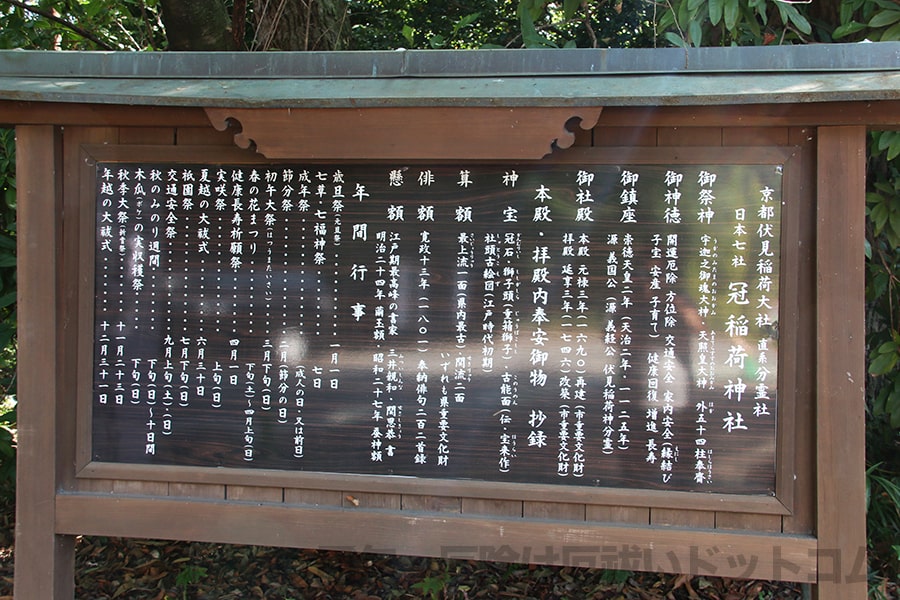 京都伏見稲荷大社 直系分霊社
日本七社 冠稲荷神社
御祭神 宇迦之御魂大神・天照皇大神 外五十四柱奉齋
御神徳 開運厄除 方位除 交通安全 家内安全(縁結び
子宝 安産 子育て) 健康回復 増進 長寿
御鎮座 崇徳天皇二年(天治二年・一一二五年)
源 義国公(源 義経公 伏見稲荷神分霊)
御社殿 本殿 元禄三年(一六九〇)再建(市重要文化財
拝殿 延享三年(一七四六)改築(市重要文化財
本殿・拝殿内奉安御物 抄録
神宝 冠石・獅子頭(重箱獅子)・古能面(伝・宝来作)
社頭古絵図(江戸時代初期)
算額 最上流一面(県内最古)・関流二面
いずれも県重要文化財
俳額 寛政十三年(一八〇一)奉納俳句二百二首録
懸額 江戸期最高峰の書家・三井親和・関思恭 書
明治二十四年 繭玉額・昭和二十七年 養神額
年間行事
歳旦祭(元旦祭)・・・・・・・一月一日
七草・七福神祭・・・・・・・七日
成年祭・・・・・・・(成人の日・又は前日)
節分祭・・・・・・・二月(節分の日)
初午大祭(はつうまたいさい)・・・三月下旬(日)
春の花まつり・・・・・・・下旬(土)〜四月上旬(日)
健康長寿祈願祭・・・・・・・四月一日
実咲祭・・・・・・・上旬(日)
夏越の大祓式・・・・・・・六月三十日
祇園祭・・・・・・・七月下旬(日)
交通安全祭・・・・・・・九月上旬(土)・(日)
秋のみのり週間・・・・・・・下旬(日)〜十日間
木瓜(ボケ)の実収穫祭・・・下旬(日)
秋季大祭(新嘗祭)・・・・・・・十一月二十三日
年越の大祓式・・・・・・・十二月三十一日